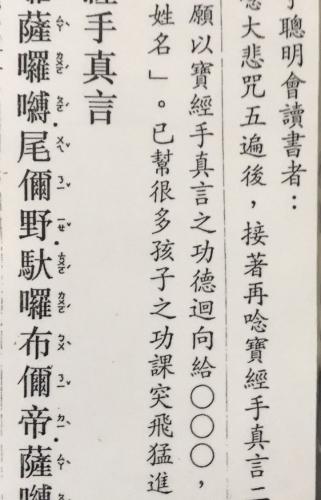 聰明會讀書者：
大悲咒五遍後，接著再唸寶經手真言
願以寶經手真言之功德迴向給○○○，
姓名」。已幫很多孩子之功課突飛猛進
經手真言
薩囉嚩．尾儞野．馱囉布儞帝．薩嚩